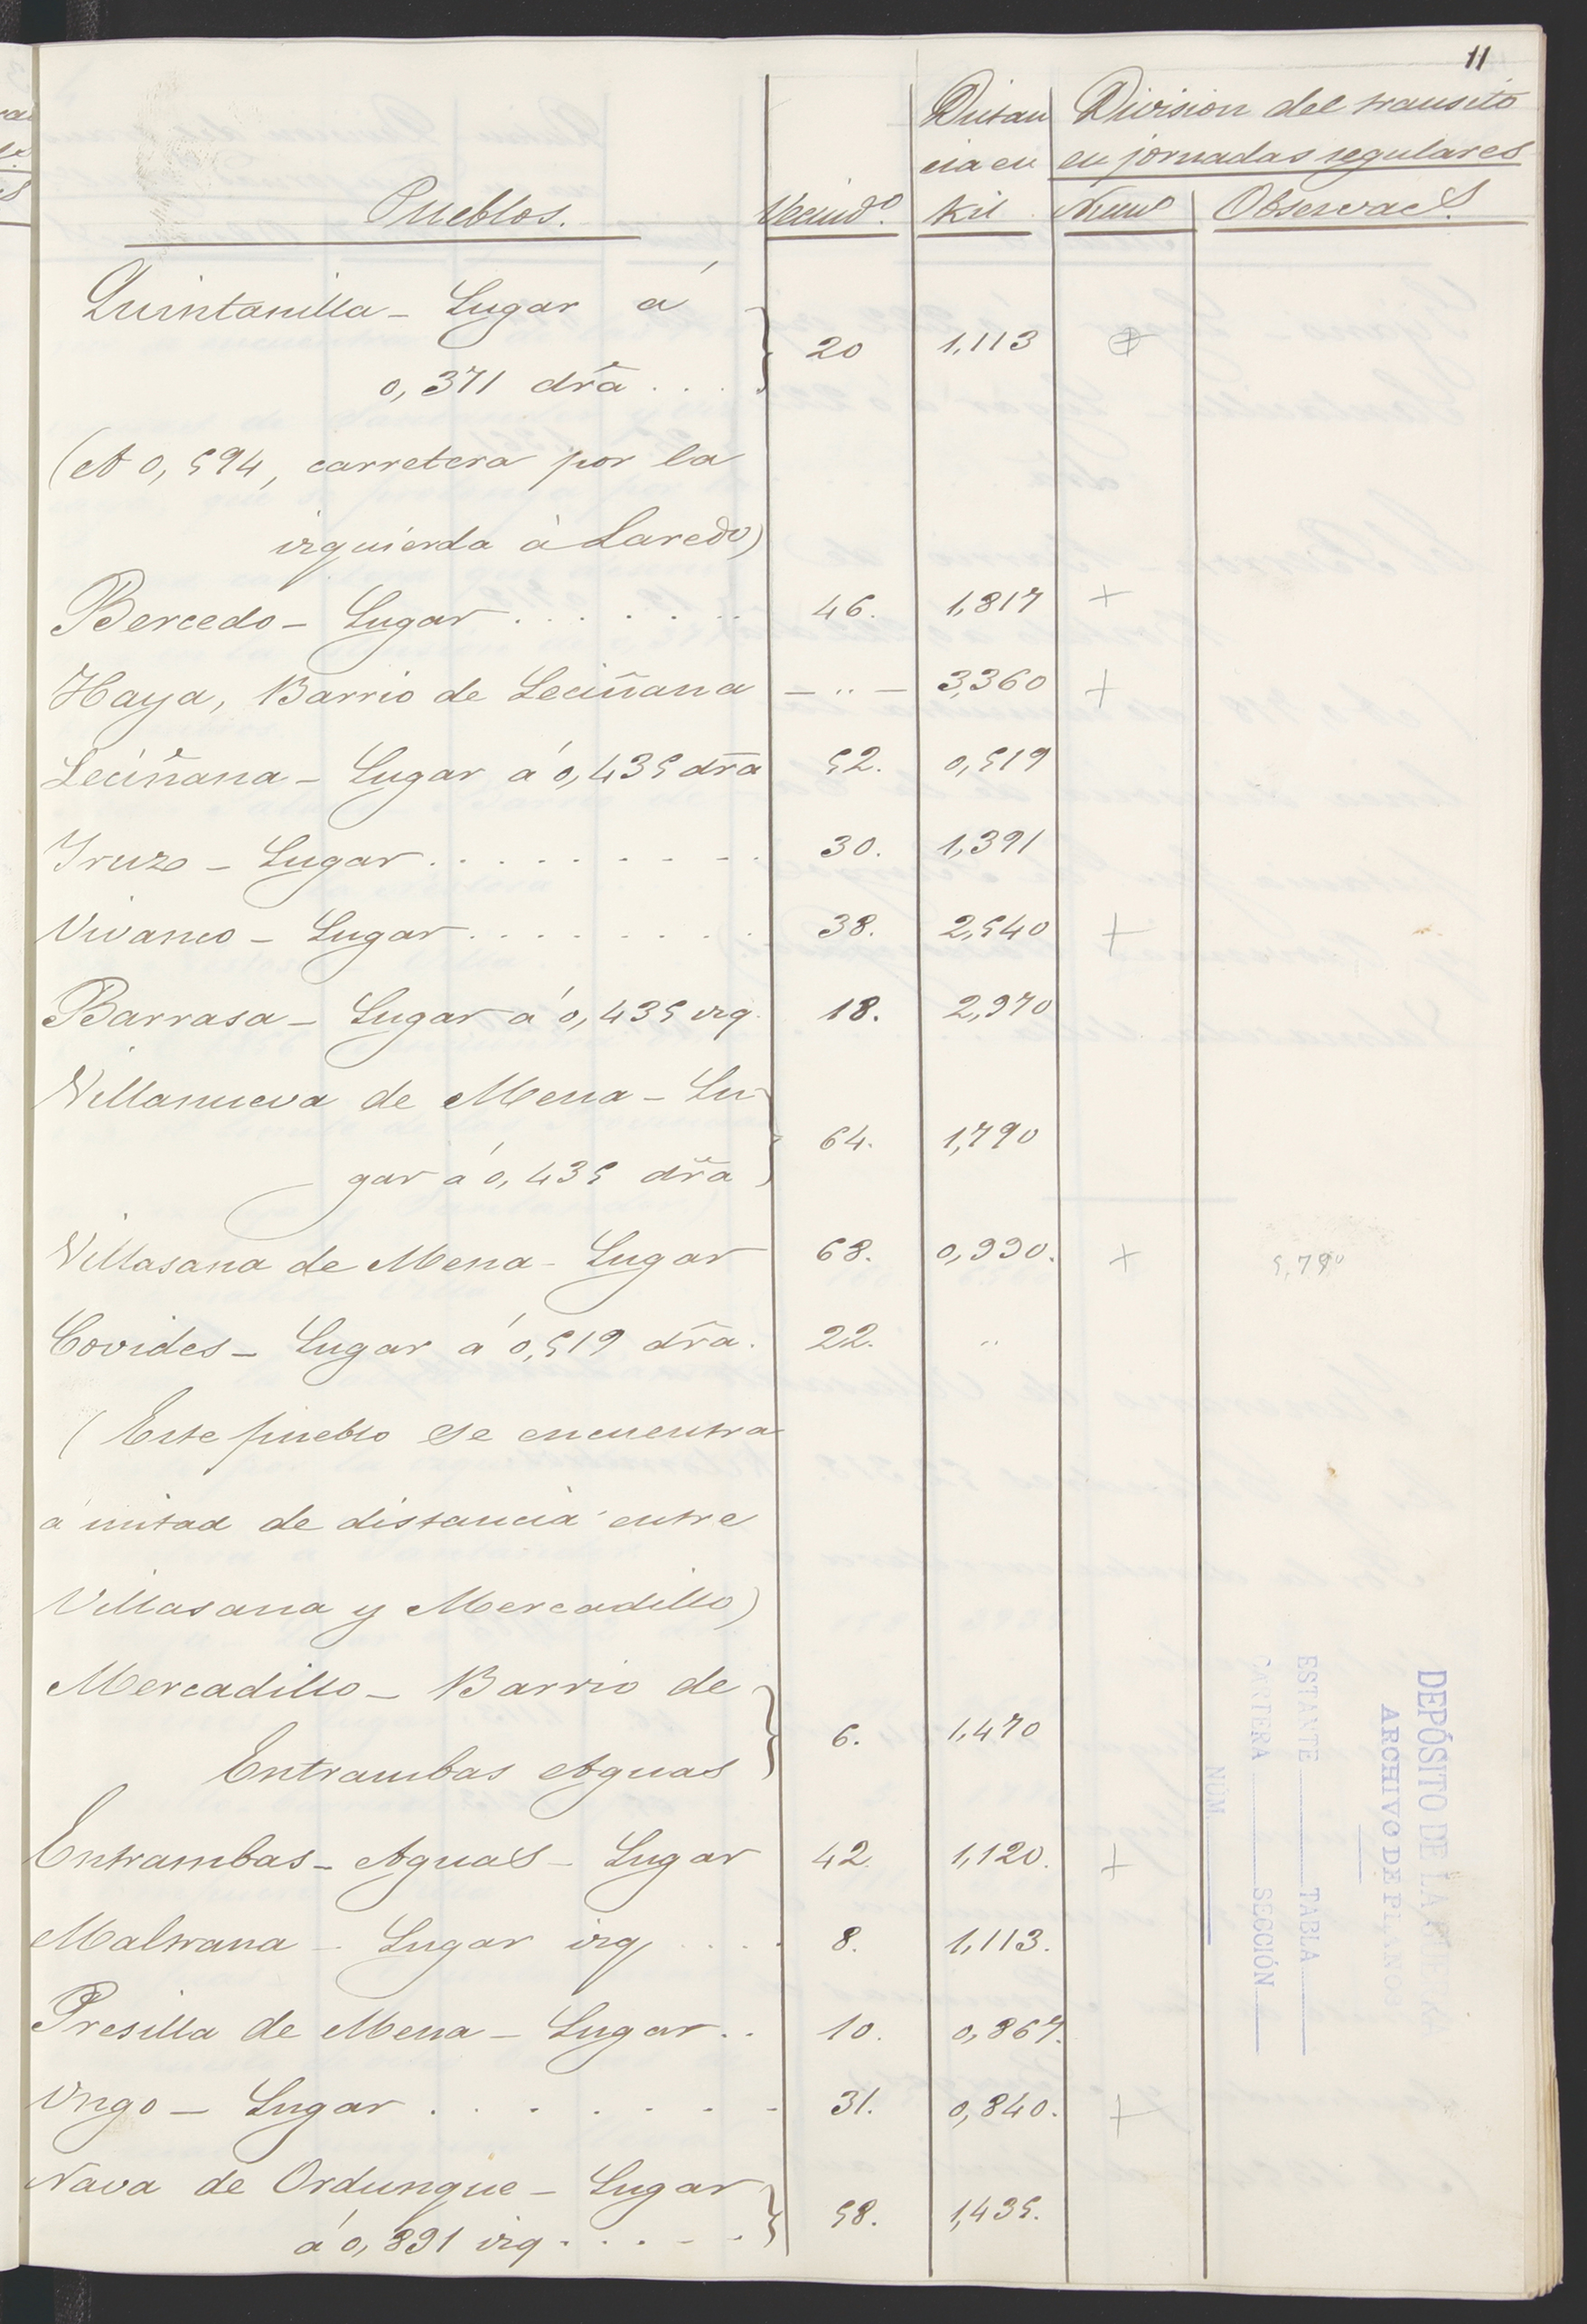 11
Distan Division del transito
cia en en jornadas regulares
Pueblos. Vecindº. Kil. Numº Observacs.
Quintanilla - Lugar á
20 1,113
0,371 dra̅ . . .
(A 0,594, carretera por la
izquierda à Laredo)
Bercedo - Lugar . . . . . . . 46. 1,817 +
Haya, Barrio de Leciñana — ,, — 3,360 +
Leciñana - Lugar á 0,435 dra̅ 52. 0,519
Iruzo - Lugar . . . . . . . . . 30. 1,391
Vivanco - Lugar . . . . . . . . 38. 2,540 +
Barrasa - Lugar á 0,435 izq. 18. 2,970
Villanueva de Mena - Lu
64. 1,790
gar á 0,435 dra̅
Villasana de Mena - Lugar 68. 0,990. + 5,790
Covides - Lugar á 0,519 dra̅. 22. ,,
(Este pueblo se encuentra
á mitad de distancia entre
Villasana y Mercadillo)
Mercadillo - Barrio de
6. 1,470
Entrambas Aguas
Entrambas - Aguas - Lugar 42. 1,120. +
Maltrana - Lugar izq . . . . 8. 1,113.
Presilla de Mena - Lugar . . 10. 0,867.
Ungo - Lugar . . . . . . . 31. 0,840. +
Nava de Ordungue - Lugar
58. 1,435.
á 0,891 izq . . . . .
DEPÓSITO DE LA GUERRA
ARCHIVO DE PLANOS
ESTANTE TABLA
CARTERA SECCIÓN
NÚM.